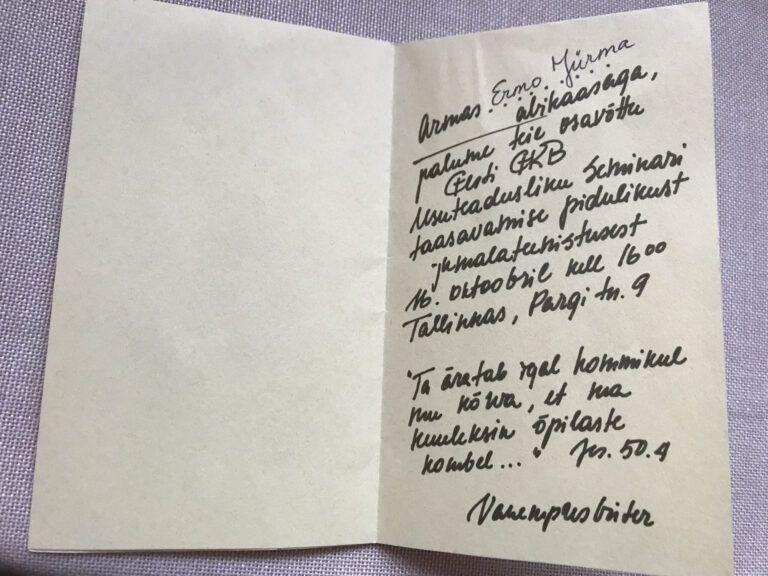 Armas Ermo Jürma
abikaasaga,
palume teie osavõttu
Eesti EKB
Usuteadusliku Seminari
taasavamise pidulikust
jumalateenistusest
16. oktoobril kell 16 00
Tallinnas, Pargi tn. 9
"Ta äratab igal hommikul
mu kõrva, et ma
kuuleksin õpilaste
kombel..." Jes. 50.4
Vanempresbüter